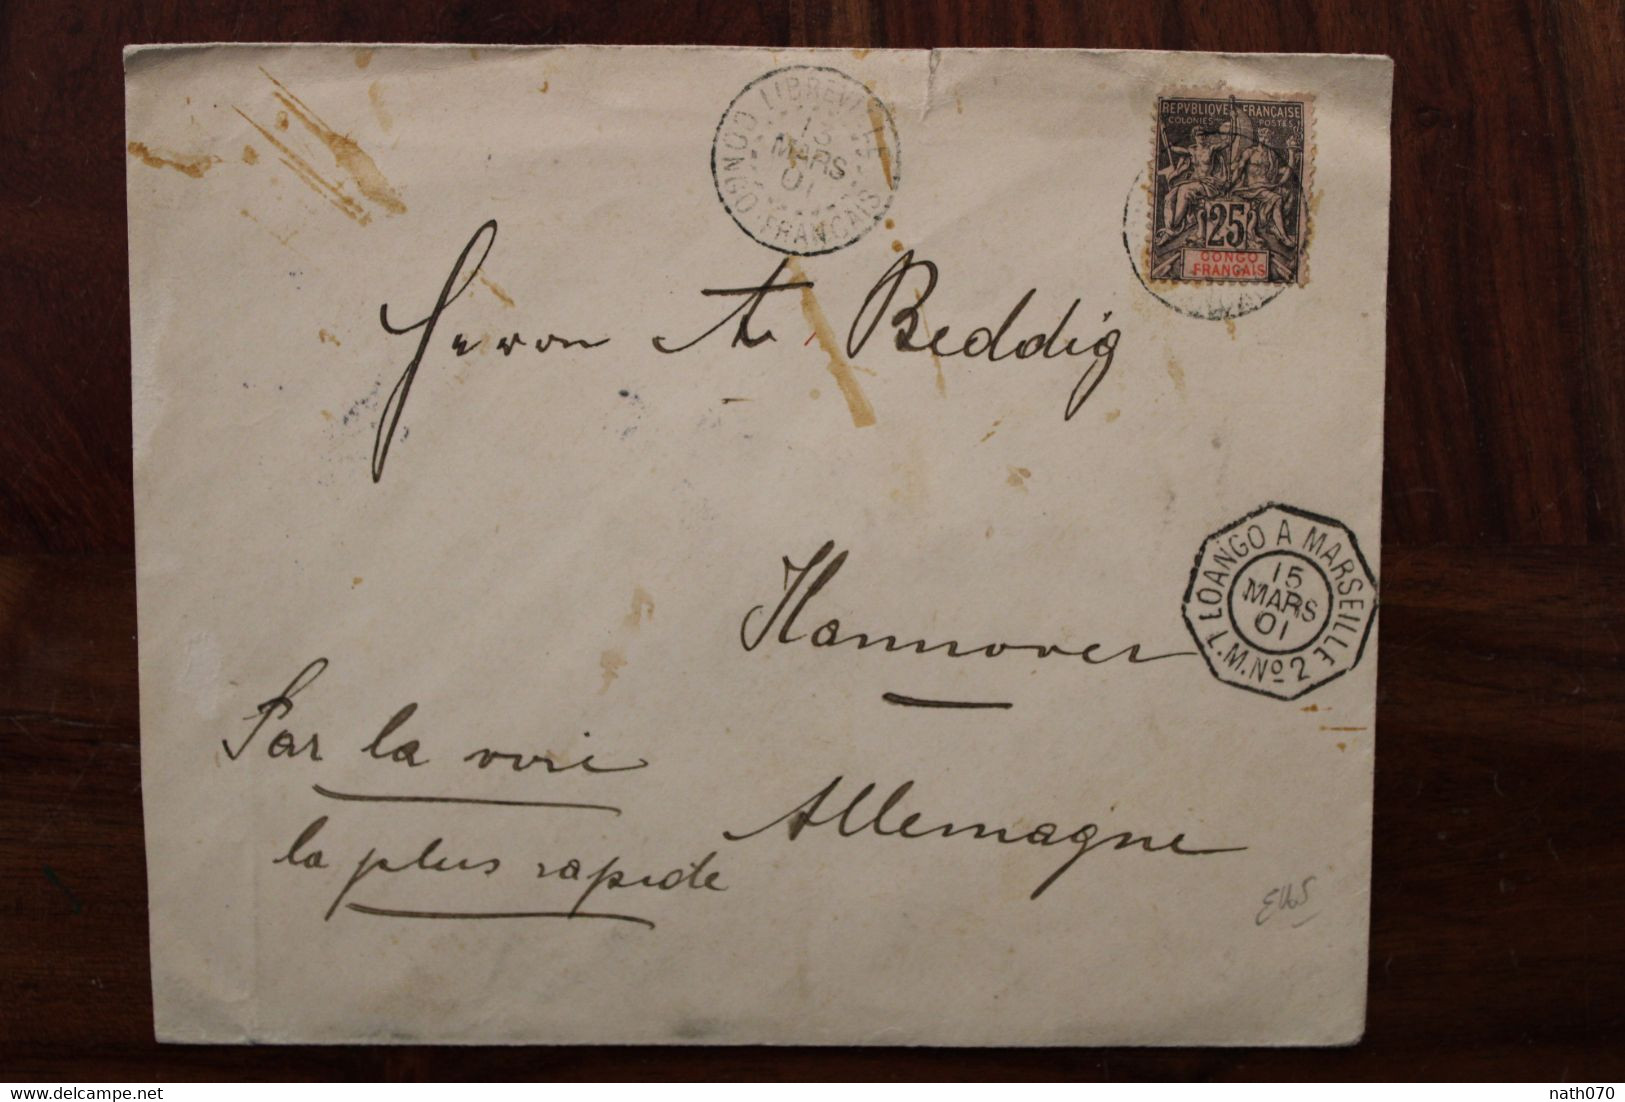 LIBREVILLE
15
MARS
01
CONGO-FRANÇAIS
REPVBLIQVE FRANÇAISE
COLONIES POSTES
25
CONGO
FRANÇAIS
Herrn A. Beddig
LOANGO A MARSEILLE
15
MARS
01
L.M.Nº2
Hannover
Par la voie
Allemagne
la plus rapide
delcampe.net
nath070